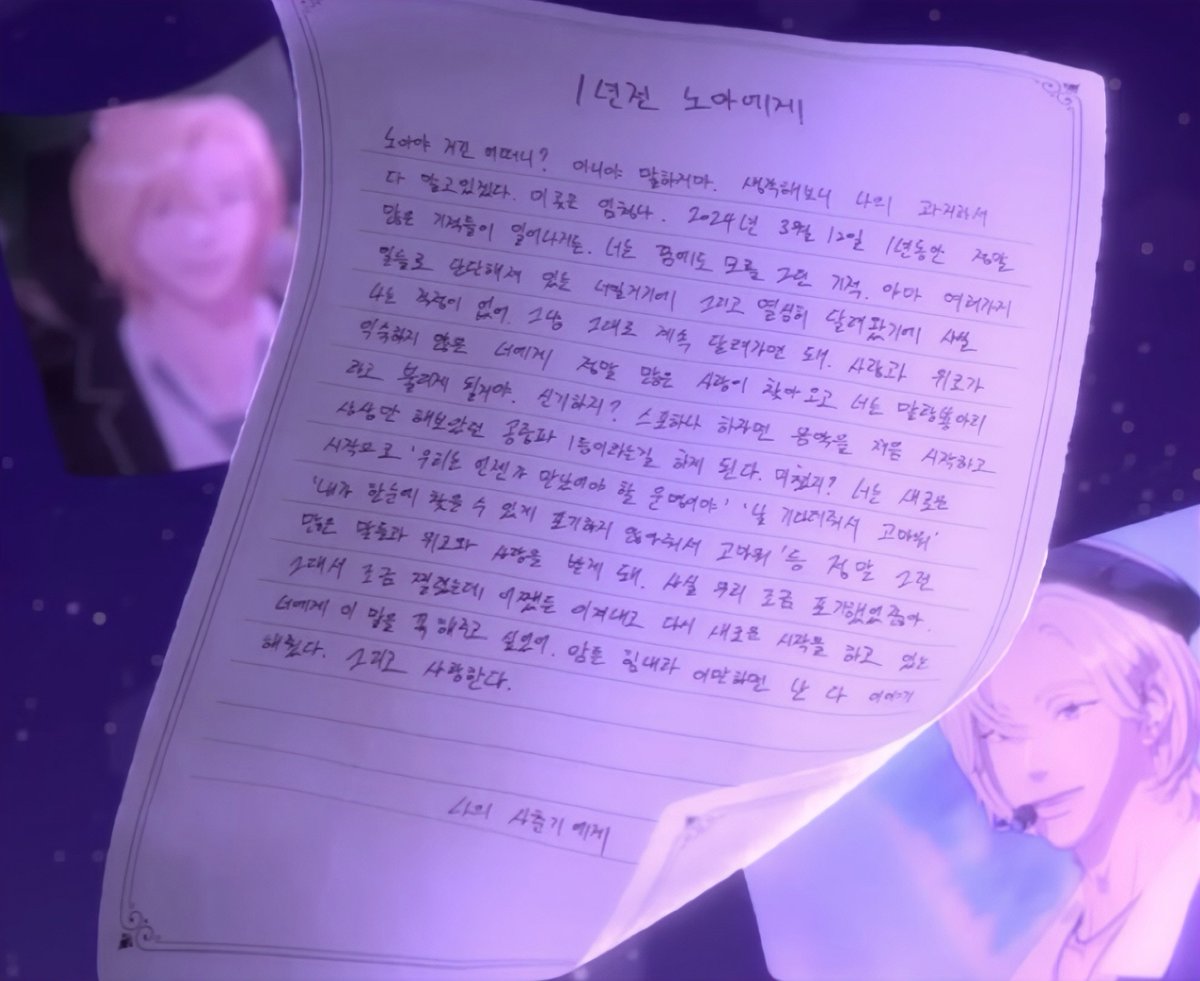 1년전 노아에게
노아야 거긴 어떠니? 아니야 말하지마. 생각해보니 나의 과거라서
다 알고있겠다. 이곳은 엄청나. 2024년 3월 12일 1년동안 정말
많은 기적들이 일어나거든. 너는 꿈에도 모를 그런 기적. 아마 여러가지
일들로 단단해져 있는 너일거기에 그리고 열심히 달려왔기에 사실
나는 걱정이 없어. 그냥 그대로 계속 달려가면 돼. 사랑과 위로가
익숙하지 않은 너에게 정말 많은 사랑이 찾아오고 너는 말랑뽕아리
라고 불리게 될거야. 신기하지? 스포하나 하자면 음악을 처음 시작하고
상상만 해보았던 공중파 1등이라는걸 하게 된다. 미쳤지? 너는 새로운
시작으로 '우리는 언젠가 만났어야 할 운명이야' '날 기다려줘서 고마워'
'내가 한눈에 찾을 수 있게 포기하지 않아줘서 고마워' 등 정말 그런
많은 말들과 위로와 사랑을 받게 돼. 사실 우리 조금 포기했었잖아.
그래서 조금 찔렸는데 어쨌든 이겨내고 다시 새로운 시작을 하고 있는
너에게 이 말을 꼭 해주고 싶었어. 암튼 힘내라 이만하면 난 다 이야기
해줬다. 그리고 사랑한다.
나의 사춘기에게